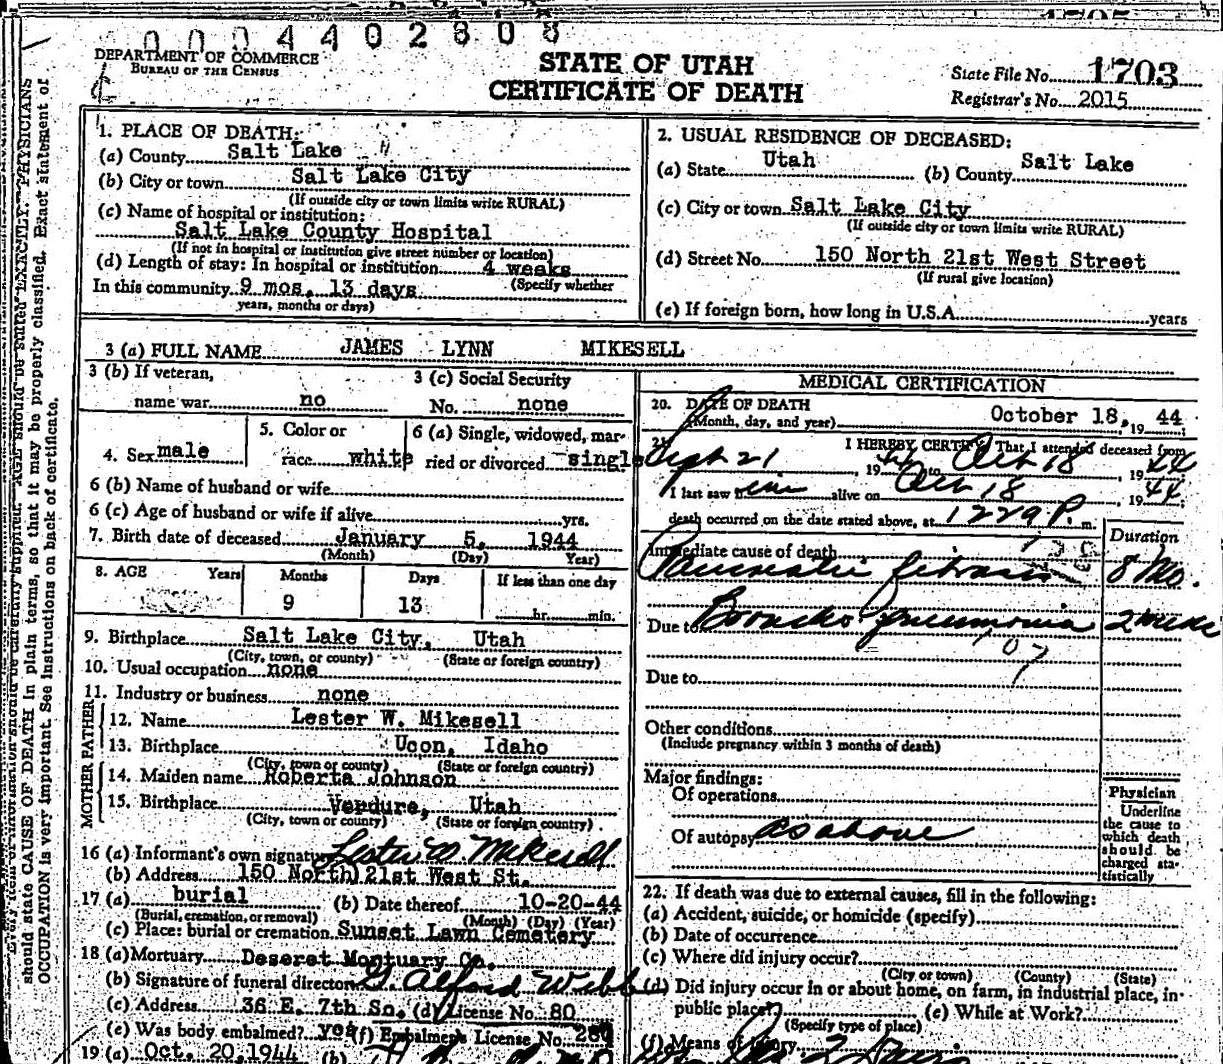 0004402808
DEPARTMENT OF COMMERCE
BUREAU OF THE CENSUS
STATE OF UTAH
CERTIFICATE OF DEATH
State File No. 1703
Registrar's No. 2015
should state CAUSE OF DEATH in plain terms, so that it may be properly classified. Exact statement of
OCCUPATION is very important. See instructions on back of certificate.
1. PLACE OF DEATH:
(a) County Salt Lake
(b) City or town Salt Lake City
(If outside city or town limits write RURAL)
(c) Name of hospital or institution:
Salt Lake County Hospital
(If not in hospital or institution give street number or location)
(d) Length of stay: In hospital or institution 4 weeks
(Specify whether
In this community 9 mos. 13 days
years, months or days)
2. USUAL RESIDENCE OF DECEASED:
(a) State Utah (b) County Salt Lake
(c) City or town Salt Lake City
(If outside city or town limits write RURAL)
(d) Street No. 150 North 21st West Street
(If rural give location)
(e) If foreign born, how long in U.S.A. years
3 (a) FULL NAME JAMES LYNN MIKESELL
3 (b) If veteran, name war no
3 (c) Social Security No. none
4. Sex male
5. Color or race white
6 (a) Single, widowed, married or divorced single
6 (b) Name of husband or wife
6 (c) Age of husband or wife if alive yrs.
7. Birth date of deceased January 5, 1944
(Month) (Day) Year)
8. AGE Years Months Days If less than one day
9 13 hr. min.
9. Birthplace Salt Lake City, Utah
(City, town, or county) (State or foreign country)
10. Usual occupation none
11. Industry or business none
FATHER
12. Name Lester W. Mikesell
13. Birthplace Ucon, Idaho
(City, town or county) (State or foreign country)
MOTHER
14. Maiden name Roberta Johnson
15. Birthplace Verdure, Utah
(City, town or county) (State or foreign country)
16 (a) Informant's own signature Lester W Mikesell
(b) Address 150 North 21st West St.
17 (a) burial (b) Date thereof 10-20-44
(Burial, cremation, or removal) (Month) (Day) (Year)
(c) Place: burial or cremation Sunset Lawn Cemetery
18 (a) Mortuary Deseret Mortuary Co.
(b) Signature of funeral director G. Alford Webb
(c) Address 36 E. 7th So. (d) License No. 80
(e) Was body embalmed? yes (f) Embalmer's License No.
19 (a) Oct. 20, 1944 (b)
MEDICAL CERTIFICATION
20. DATE OF DEATH
(Month, day, and year) October 18, 1944
21. I HEREBY CERTIFY That I attended deceased from
Sept 21, 1944 to Oct 18, 1944
I last saw him alive on Oct 18, 1944
death occurred on the date stated above, at 1229 P. m.
Duration
Immediate cause of death
Pancreatic fibrosis 8 Mo.
Due to Broncho pneumonia 2 weeks
107
Due to
Other conditions
(Include pregnancy within 3 months of death)
Major findings:
Of operations
Of autopsy as above
Physician
Underline
the cause to
which death
should be
charged sta-
tistically
22. If death was due to external causes, fill in the following:
(a) Accident, suicide, or homicide (specify)
(b) Date of occurrence
(c) Where did injury occur?
(City or town) (County) (State)
(d) Did injury occur in or about home, on farm, in industrial place, in
public place? (e) While at Work?
(Specify type of place)
(f) Means of injury